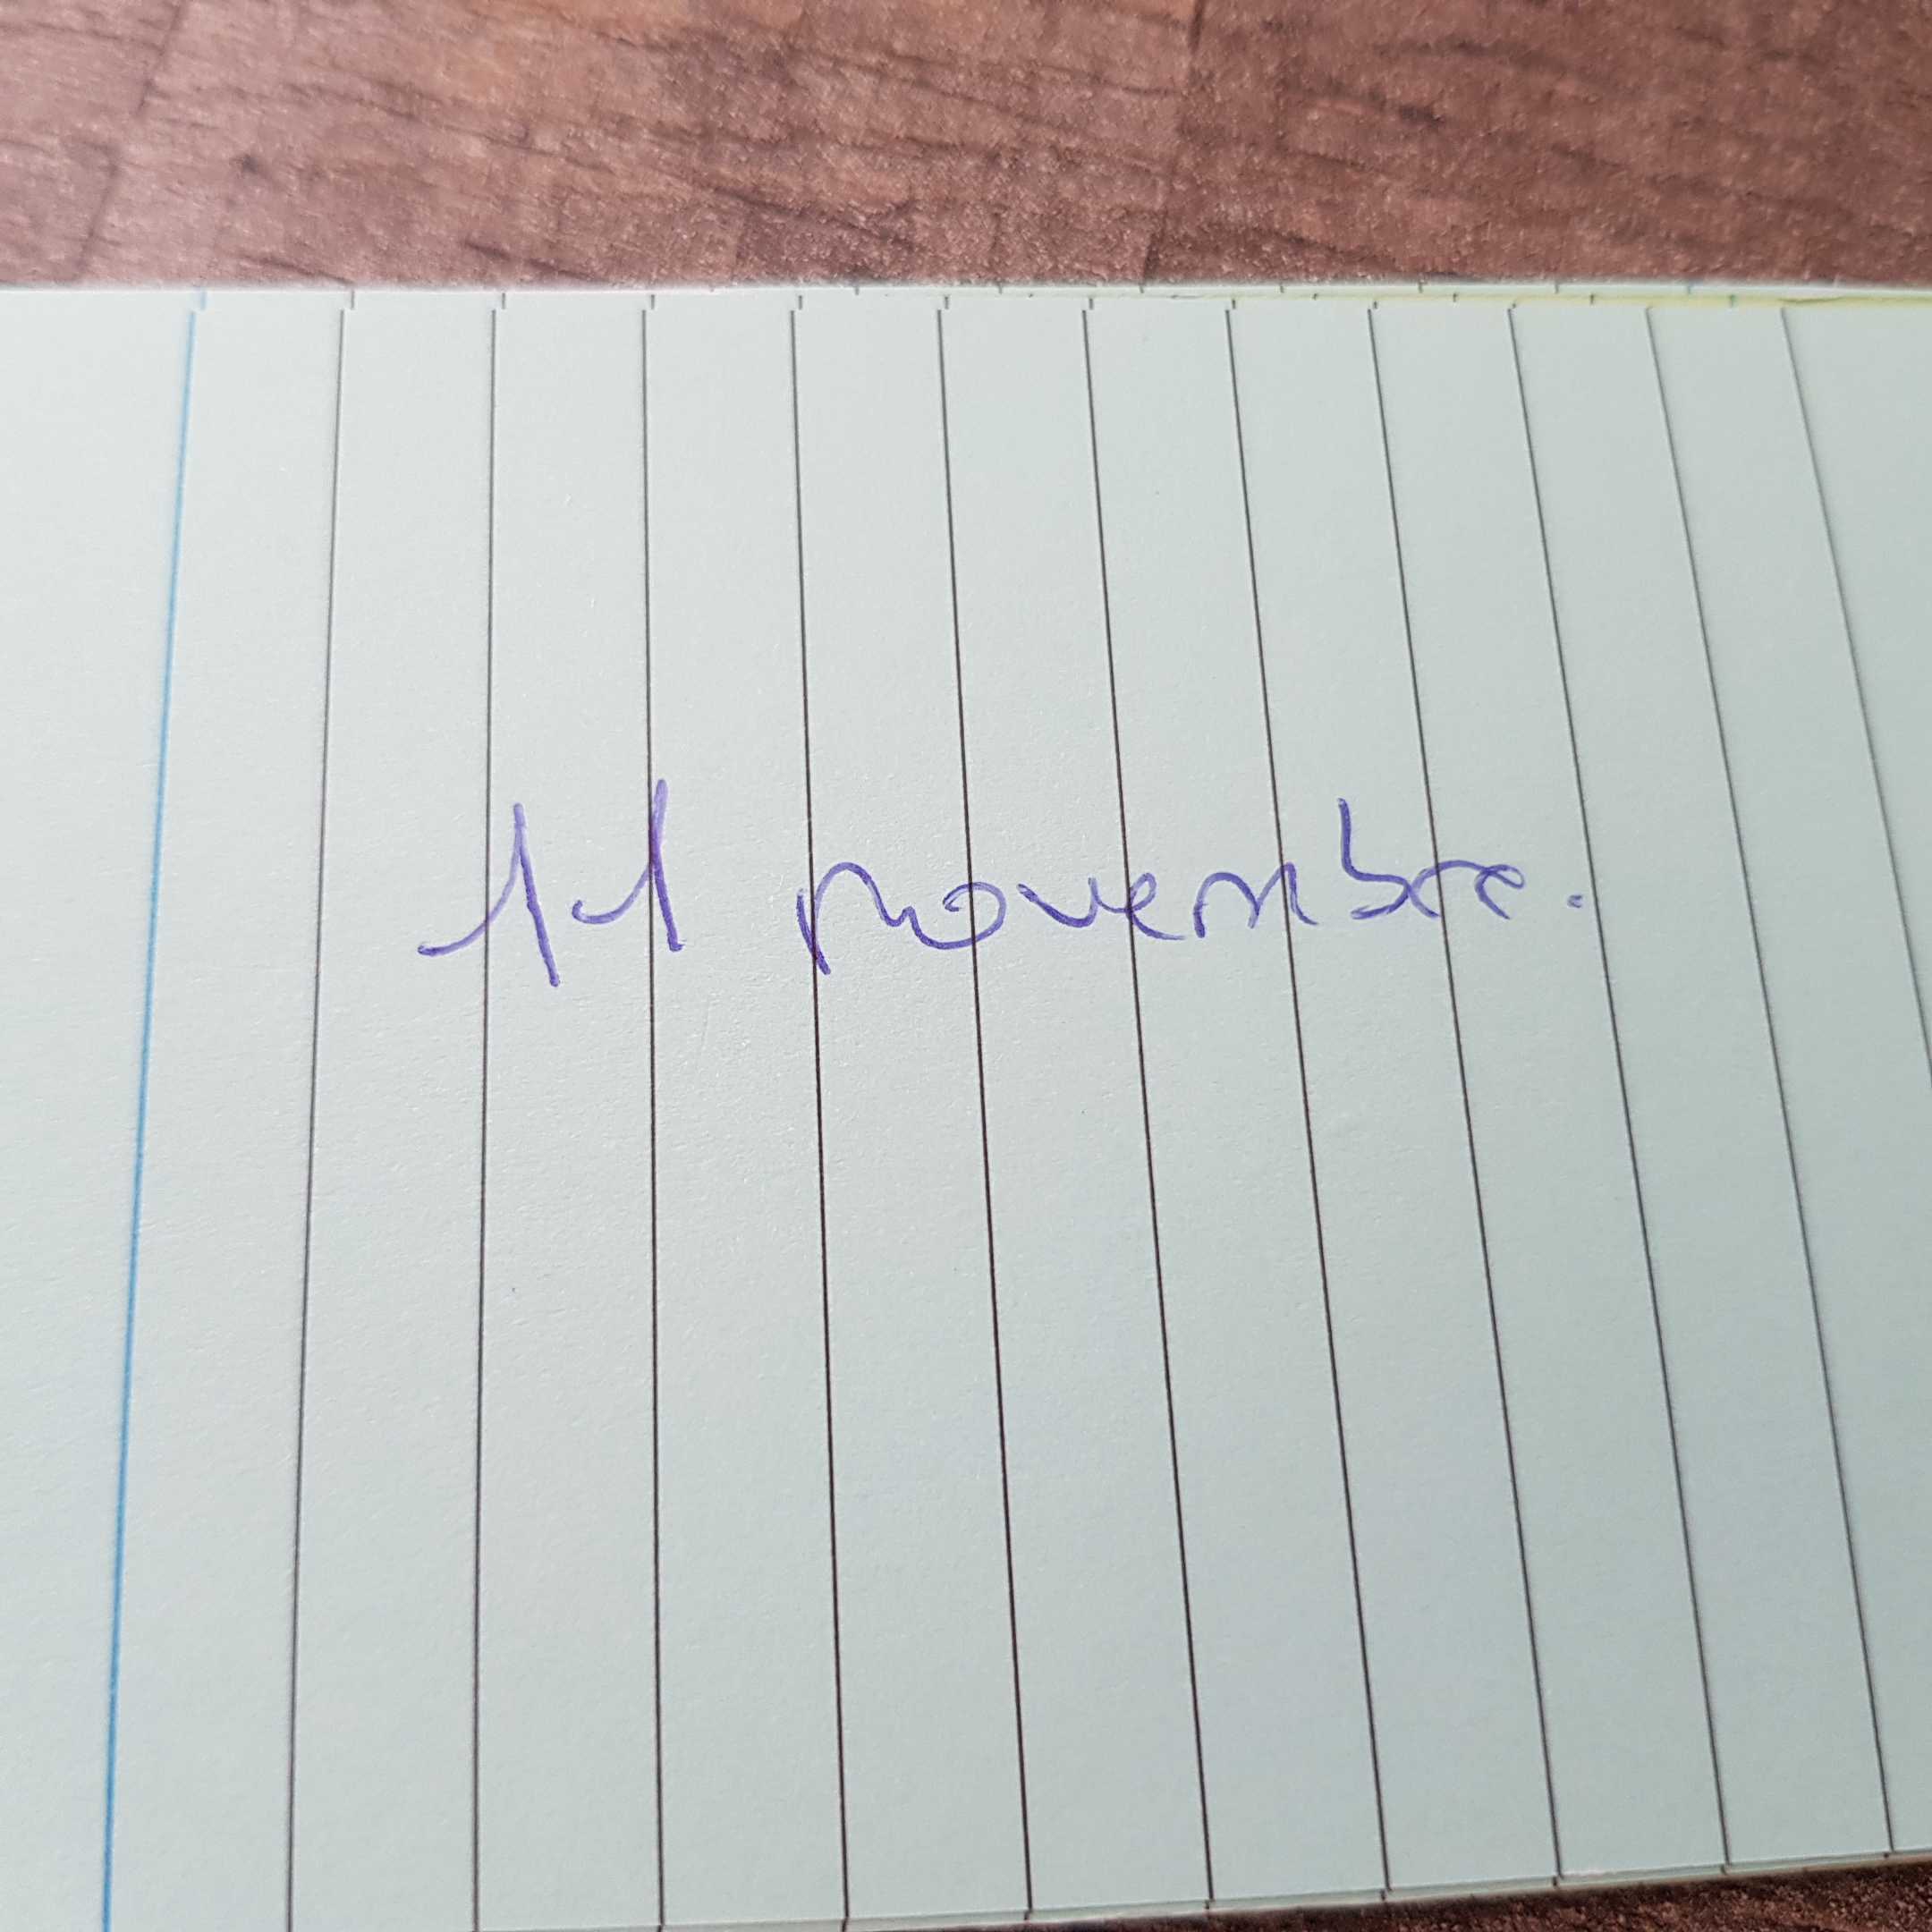 11 novembre.